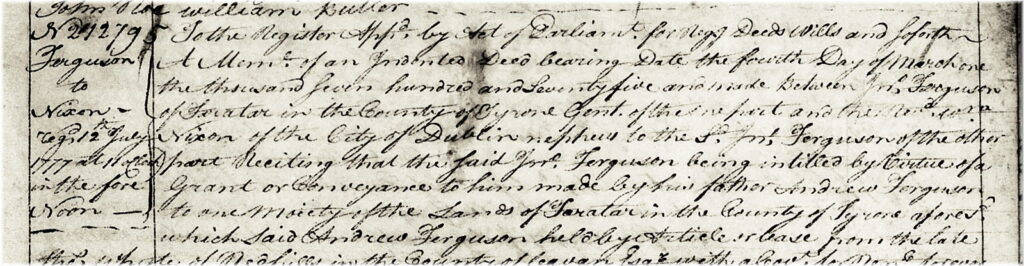 John Roe
William Butler
No 212795
Ferguson
to
Nixon
Regd 12th July
1777 at
in the fore
Noon
To the Register Appd. by Act of Parliamt. for Regg Deeds Wills and soforth
A Meml. of an Indented Deed bearing Date the fourth Day of March one
the thousand seven hundred and seventy five and made Between Jno. Ferguson
of Taratar in the County of Tyrone Gent. of the one part and the
Nixon of the City of Dublin nephew to the Sd. Jno. Ferguson of the other
part Reciting that the said Jno. Ferguson being intitled by Virtue of a
Grant or Conveyance to him made by his father Andrew Ferguson
to one Moiety of the Lands of Taratar in the County of Tyrone aforesd.
which said Andrew Ferguson held by Article or Lease from the late
of Redhills in the County of Cavan Esqr. with a Covt. for